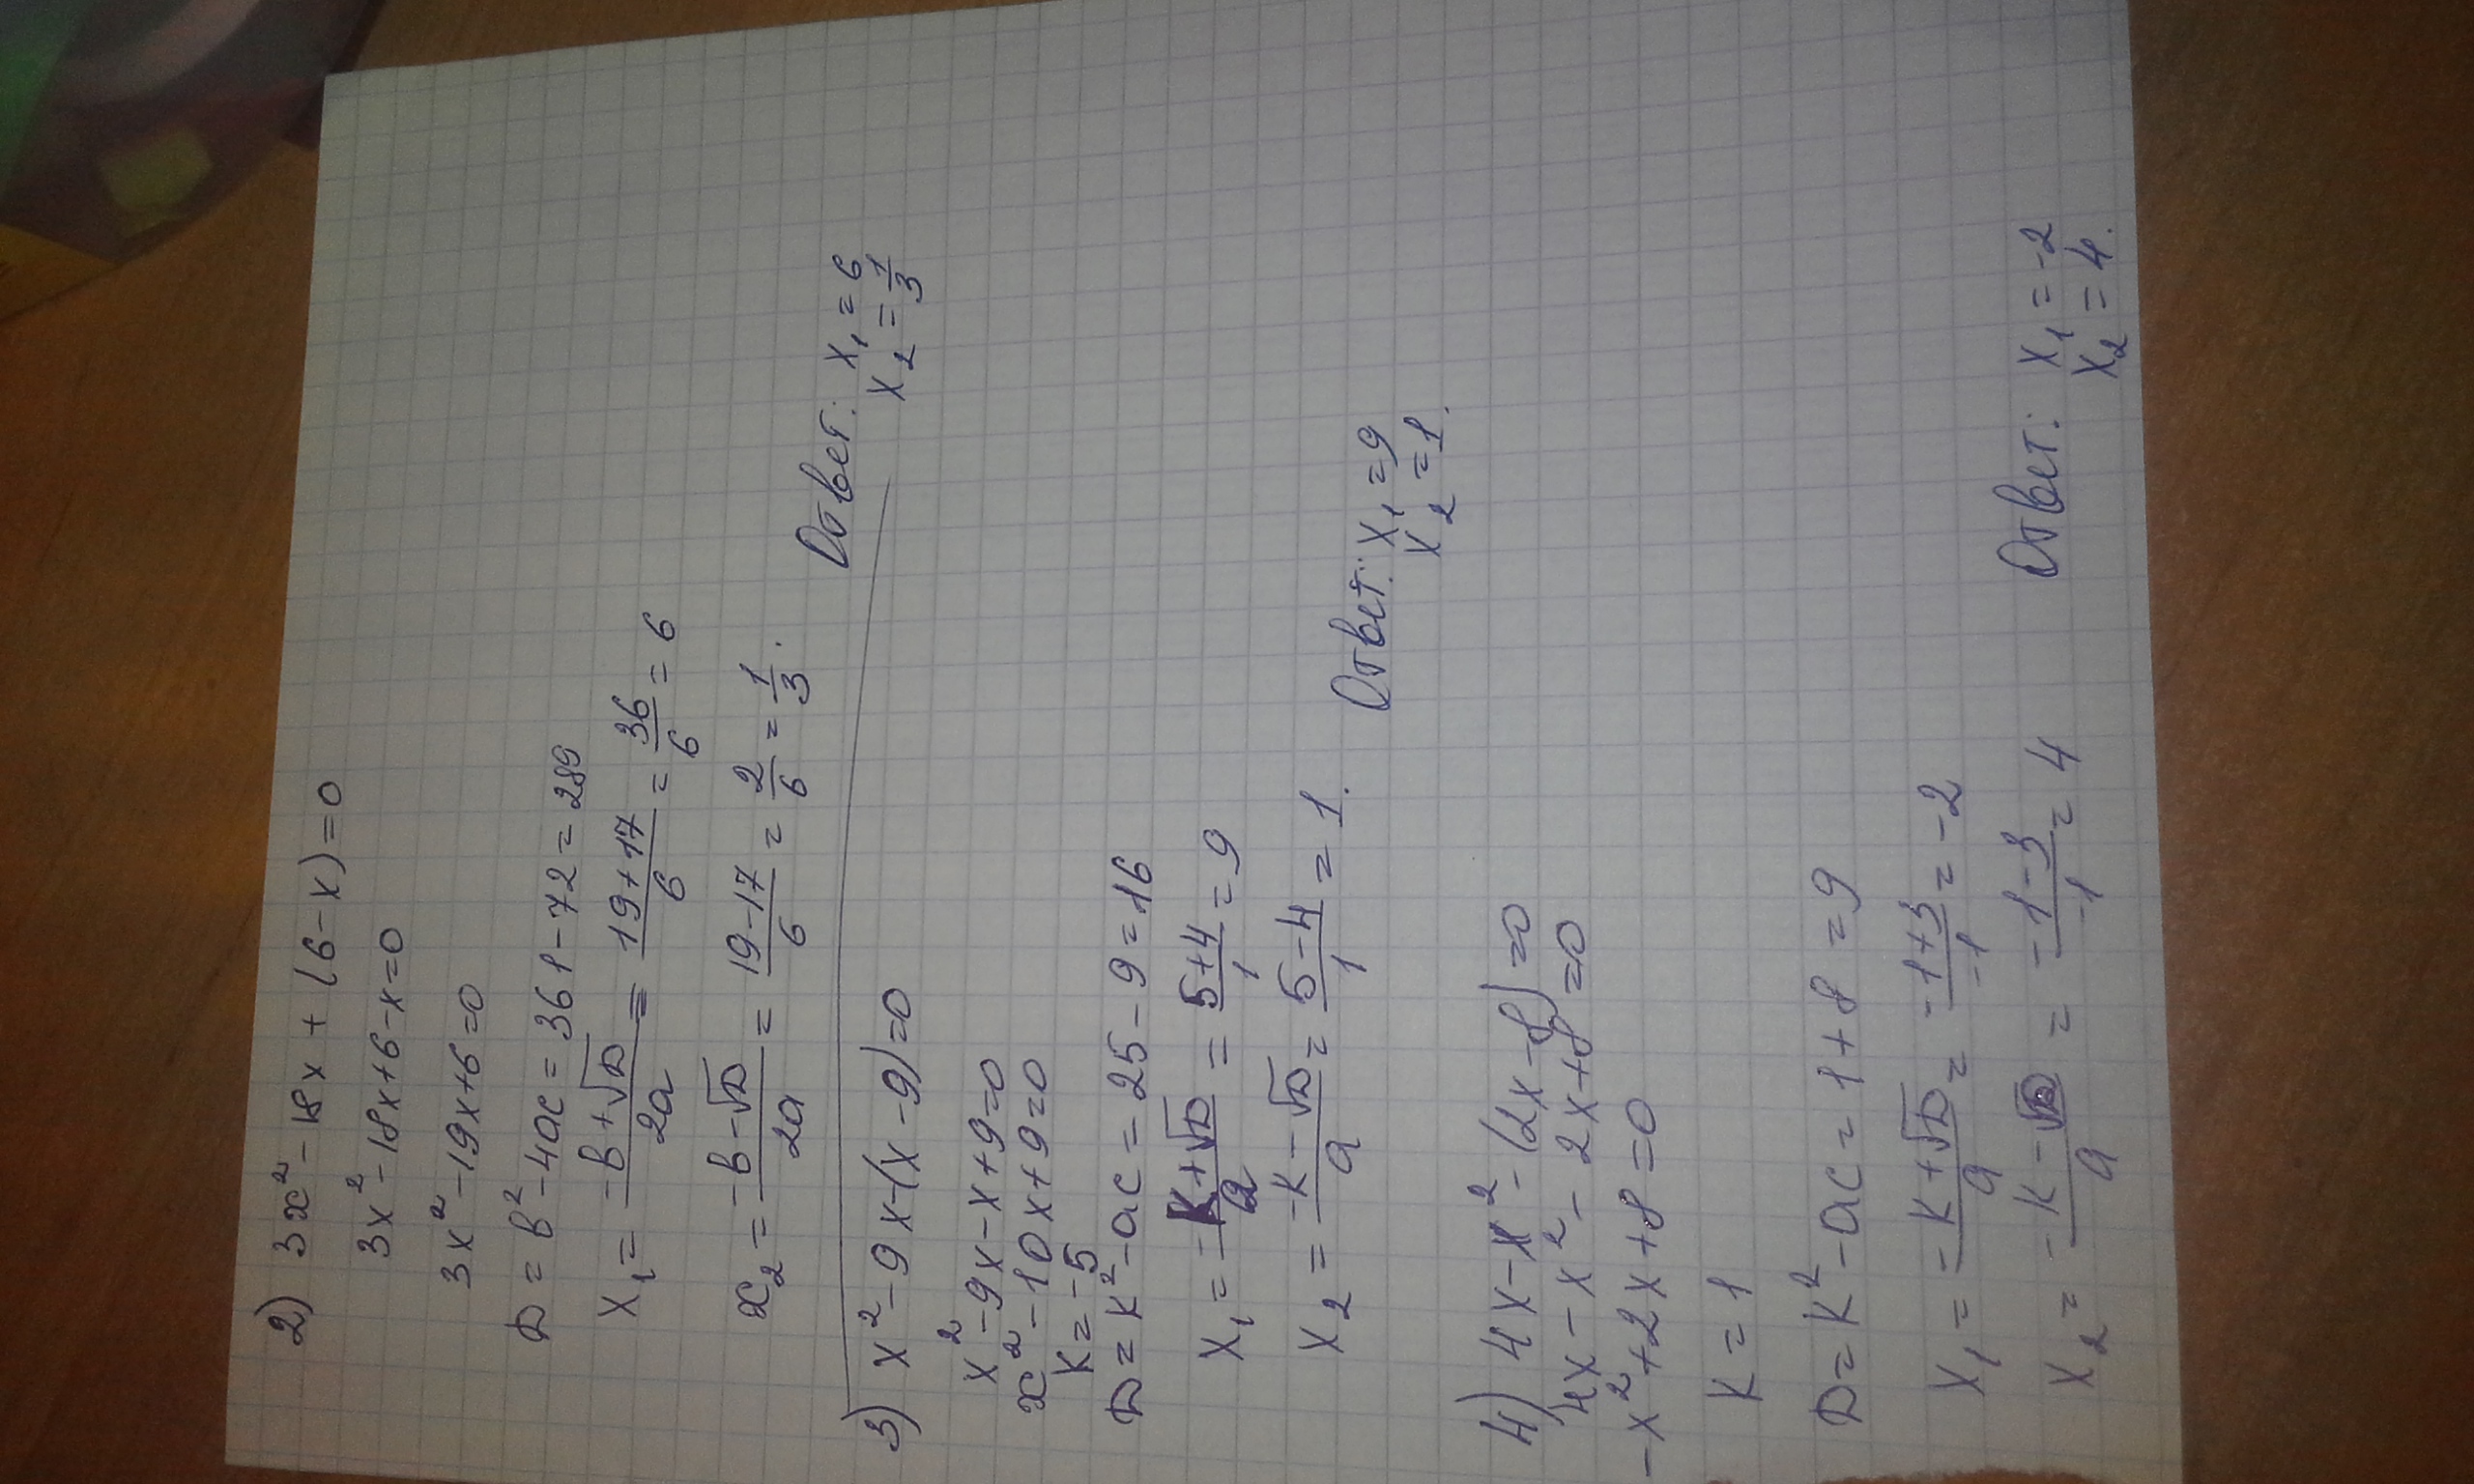 2) 3x² - 18x + (6 - x) = 0
3x² - 18x + 6 - x = 0
3x² - 19x + 6 = 0
D = b² - 4ac = 361 - 72 = 289
x₁ = (-b + √D)/2a = (19 + 17)/6 = 36/6 = 6
x₂ = (-b - √D)/2a = (19 - 17)/6 = 2/6 = 1/3.
Ответ: x₁ = 6
x₂ = 1/3
3) x² - 9x - (x - 9) = 0
x² - 9x - x + 9 = 0
x² - 10x + 9 = 0
K = -5
D = K² - ac = 25 - 9 = 16
x₁ = (-K + √D)/a = (5 + 4)/1 = 9
x₂ = (-K - √D)/a = (5 - 4)/1 = 1.
Ответ: x₁ = 9
x₂ = 1.
4) 4x - x² - (2x - 8) = 0
4x - x² - 2x + 8 = 0
-x² + 2x + 8 = 0
K = 1
D = K² - ac = 1 + 8 = 9
x₁ = (-K + √D)/a = (-1 + 3)/-1 = -2
x₂ = (-K - √D)/a = (-1 - 3)/-1 = 4
Ответ: x₁ = -2
x₂ = 4.